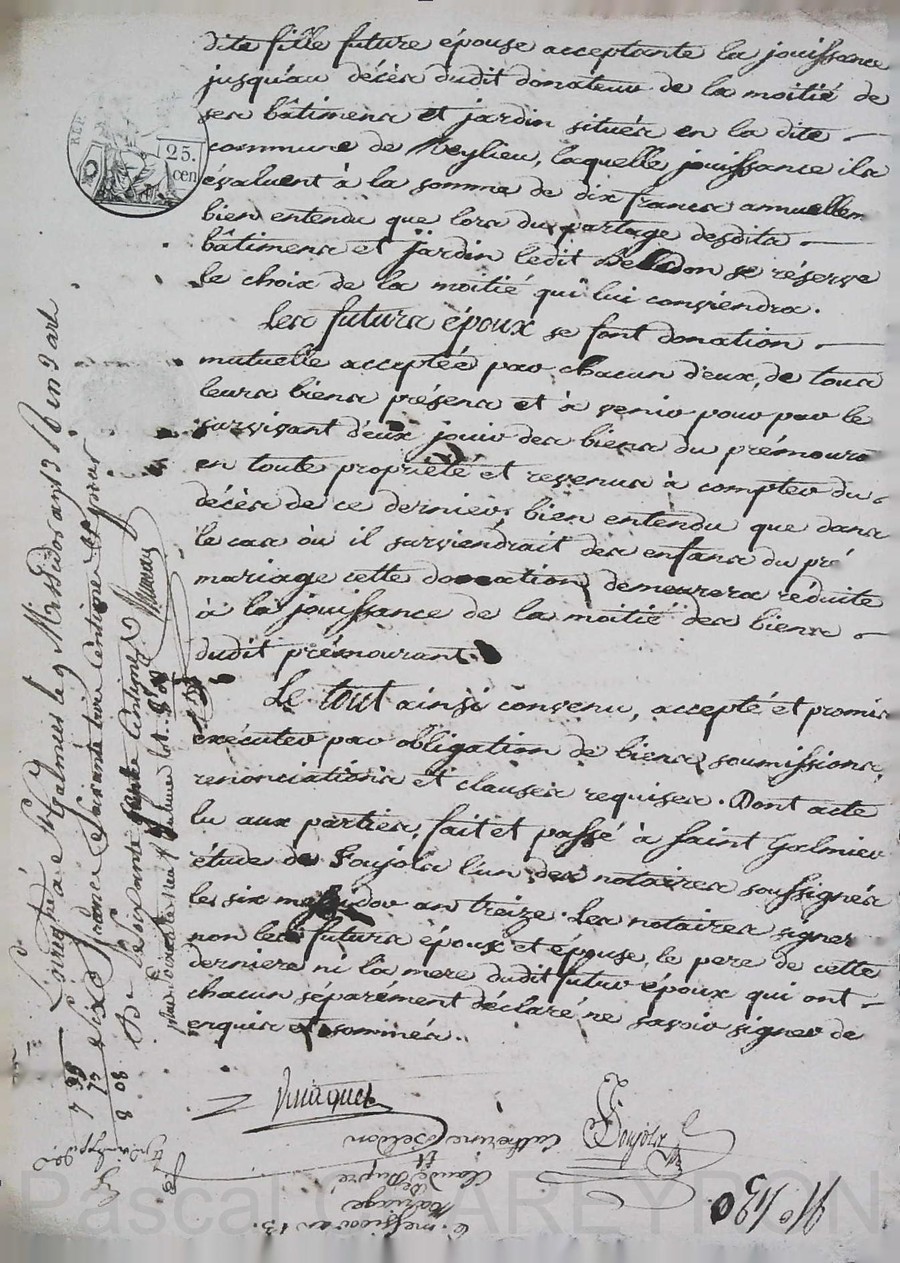 dite fille future épouse acceptante la jouissance
jusqu'au décès dudit donateur de la moitié de
ses bâtimens et jardin situés en la dite
commune de Veylieu, laquelle jouissance ils
évaluent à la somme de dix francs annuellem
bien entendu que lors du partage desdits
bâtimens et jardin ledit Beldon se réserve
le choix de la moitié qui lui conviendra.
Les futurs époux se font donation
mutuelle acceptée par chacun d'eux, de tous
leurs biens présens et à venir pour par le
survivant d'eux jouir des biens du prémourt
en toute propriété et revenus à compter du
décès de ce dernier, bien entendu que dans
le cas où il surviendrait des enfans du pré
mariage cette donation demeurera réduite
à la jouissance de la moitié des biens
dudit prémourant.
Le tout ainsi convenu, accepté et promis
exécuter par obligation de biens, soumissions,
renonciations et clauses requises. Dont acte
lu aux parties, fait et passé à Saint Galmier
étude de Boujola l'un des notaires soussignés
le six messidor an treize. Les notaires signer
non les futurs époux et épouse, le pere de cette
derniere ni la mere dudit futur époux qui ont
chacun séparément déclaré ne savoir signer de
enquis et sommés.
REP.
25.
cen
Enregistré à St Galmier le 9 Messidor an 13
francs soixante
centimes
7 35
73
8 08
Boujola
Catherine Beldon
Et
Claude Dupré
De
Mariage
6. messidor an 13.
No 130
Pascal CHAREYRON